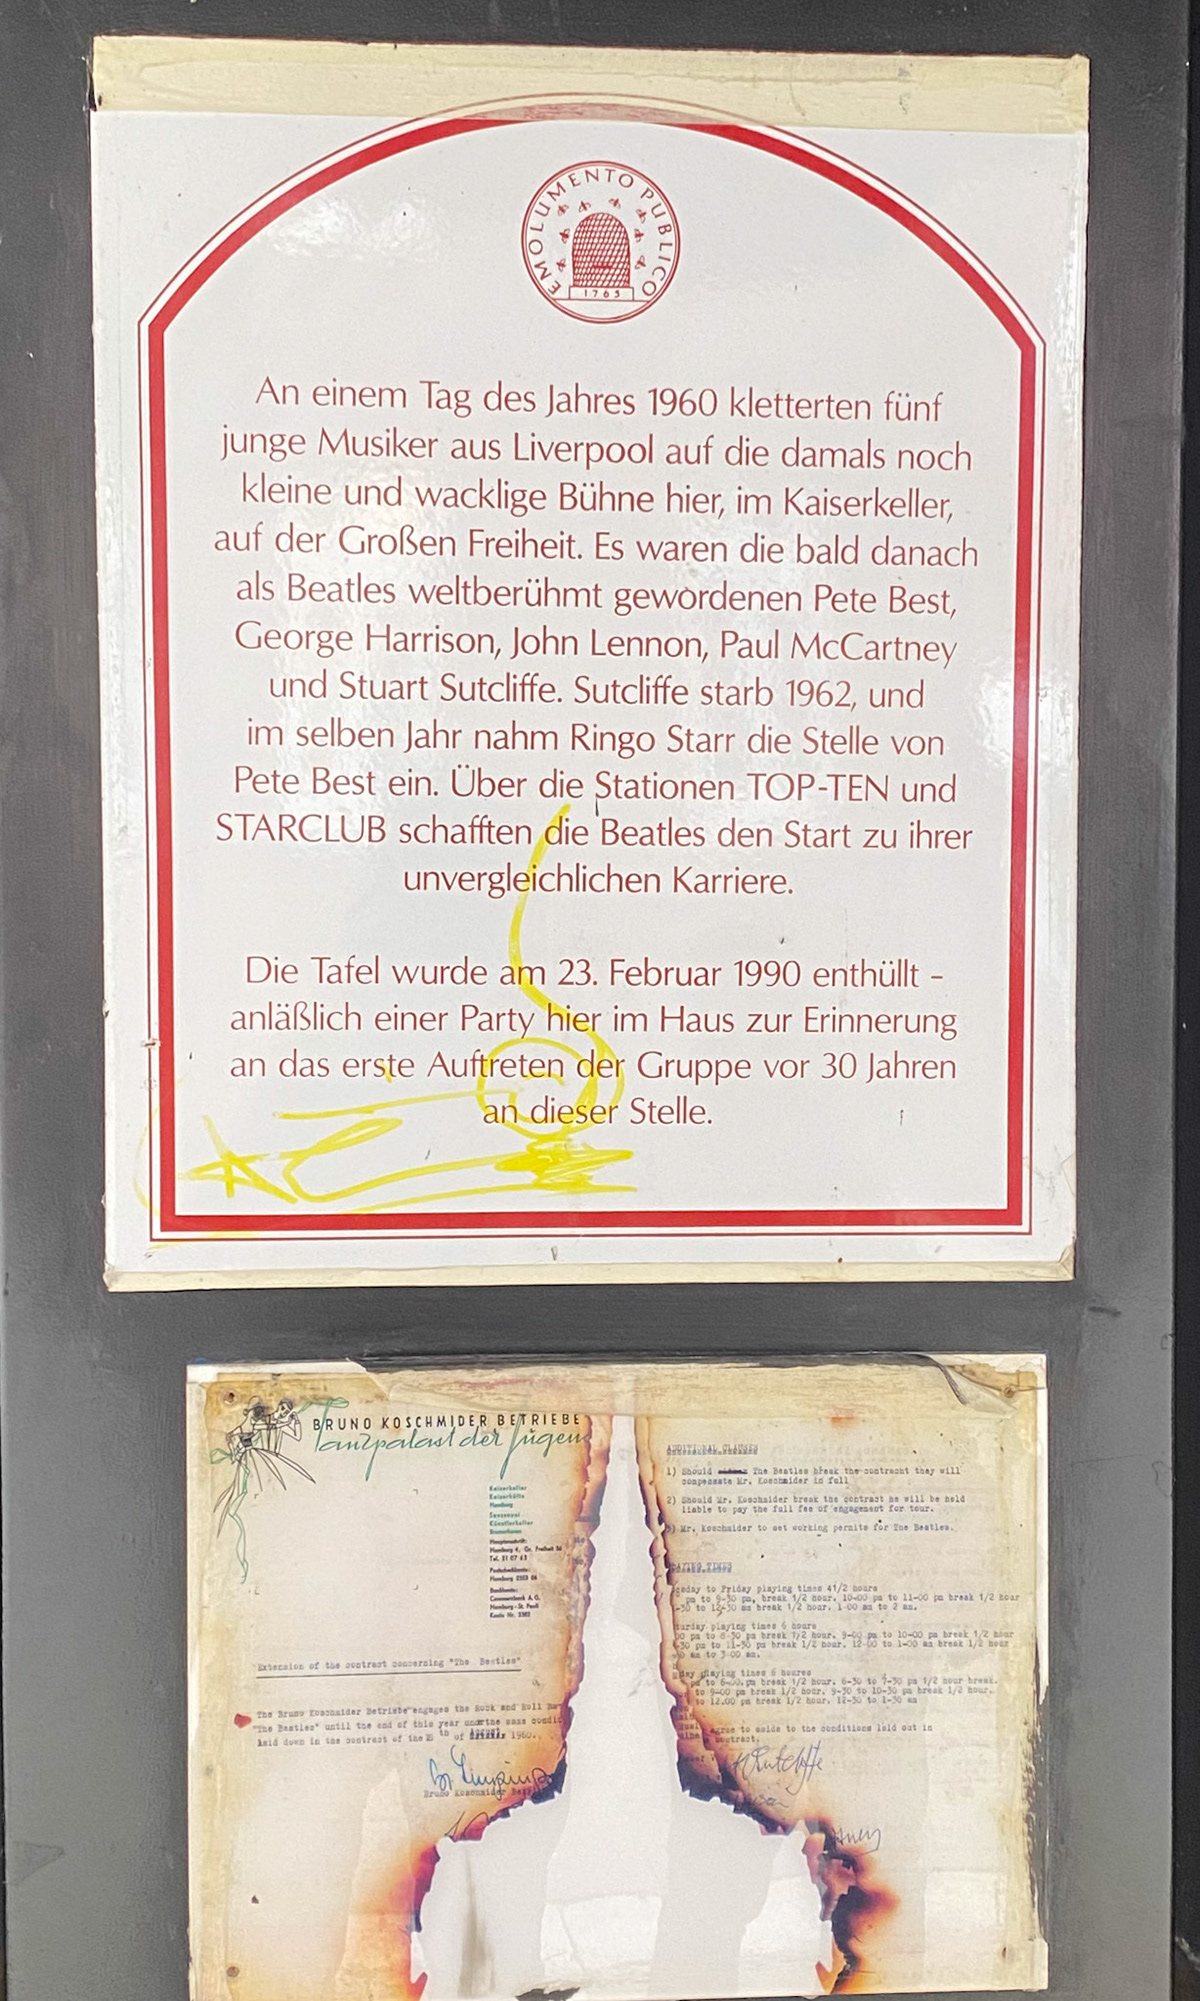 EMOLUMENTO PUBLICO
1765
An einem Tag des Jahres 1960 kletterten fünf
junge Musiker aus Liverpool auf die damals noch
kleine und wacklige Bühne hier, im Kaiserkeller,
auf der Großen Freiheit. Es waren die bald danach
als Beatles weltberühmt gewordenen Pete Best,
George Harrison, John Lennon, Paul McCartney
und Stuart Sutcliffe. Sutcliffe starb 1962, und
im selben Jahr nahm Ringo Starr die Stelle von
Pete Best ein. Über die Stationen TOP-TEN und
STARCLUB schafften die Beatles den Start zu ihrer
unvergleichlichen Karriere.
Die Tafel wurde am 23. Februar 1990 enthüllt –
anläßlich einer Party hier im Haus zur Erinnerung
an das erste Auftreten der Gruppe vor 30 Jahren
an dieser Stelle.
BRUNO KOSCHMIDER BETRIEBE
Tanzpalast der Jugen
Kaiserkeller
Hamburg
Hamburg 4, Gr. Freiheit 36
Tel. 31 07 63
Commerzbank A. G.
Hamburg - St. Pauli
Extension of the contract concerning "The Beatles"
The Bruno Koschmider Betriebe engages the Rock and Roll
"The Beatles" until the end of this year under the same
laid down in the contract of the of August 1960.
Bruno Koschmider
ADDITIONAL CLAUSES
1) Should The Beatles break the contracht they will
compensate Mr. Koschmider in full
2) Should Mr. Koschmider break the contract he will be held
liable to pay the full fee of engagement for tour.
3) Mr. Koschmider to set working permits for The Beatles.
PLAYING TIMES
to Friday playing times 41/2 hours
pm to 9-30 pm, break 1/2 hour. 10-00 pm to 11-00 pm break 1/2 hour
to 12-30 am break 1/2 hour. 1-00 am to 2 am.
playing times 6 hours
pm to 8-30 pm break 1/2 hour. 9-00 pm to 10-00 pm break 1/2 hour
pm to 11-30 pm break 1/2 hour. 12-00 to 1-00 am break 1/2 hour
am to 3-00 am.
playing times 6 houres
to 6-00. pm break 1/2 hour. 6-30 to 7-30 pm 1/2 hour break.
to 9-00 pm break 1/2 hour. 9-30 to 10-30 pm break 1/2 hour.
to 12.00 pm break 1/2 hour. 12-30 to 1-30 am
agree to to the conditions laid out in
contract.